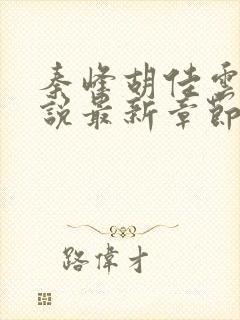 秦峰胡佳雲
說最新章節
路偉才